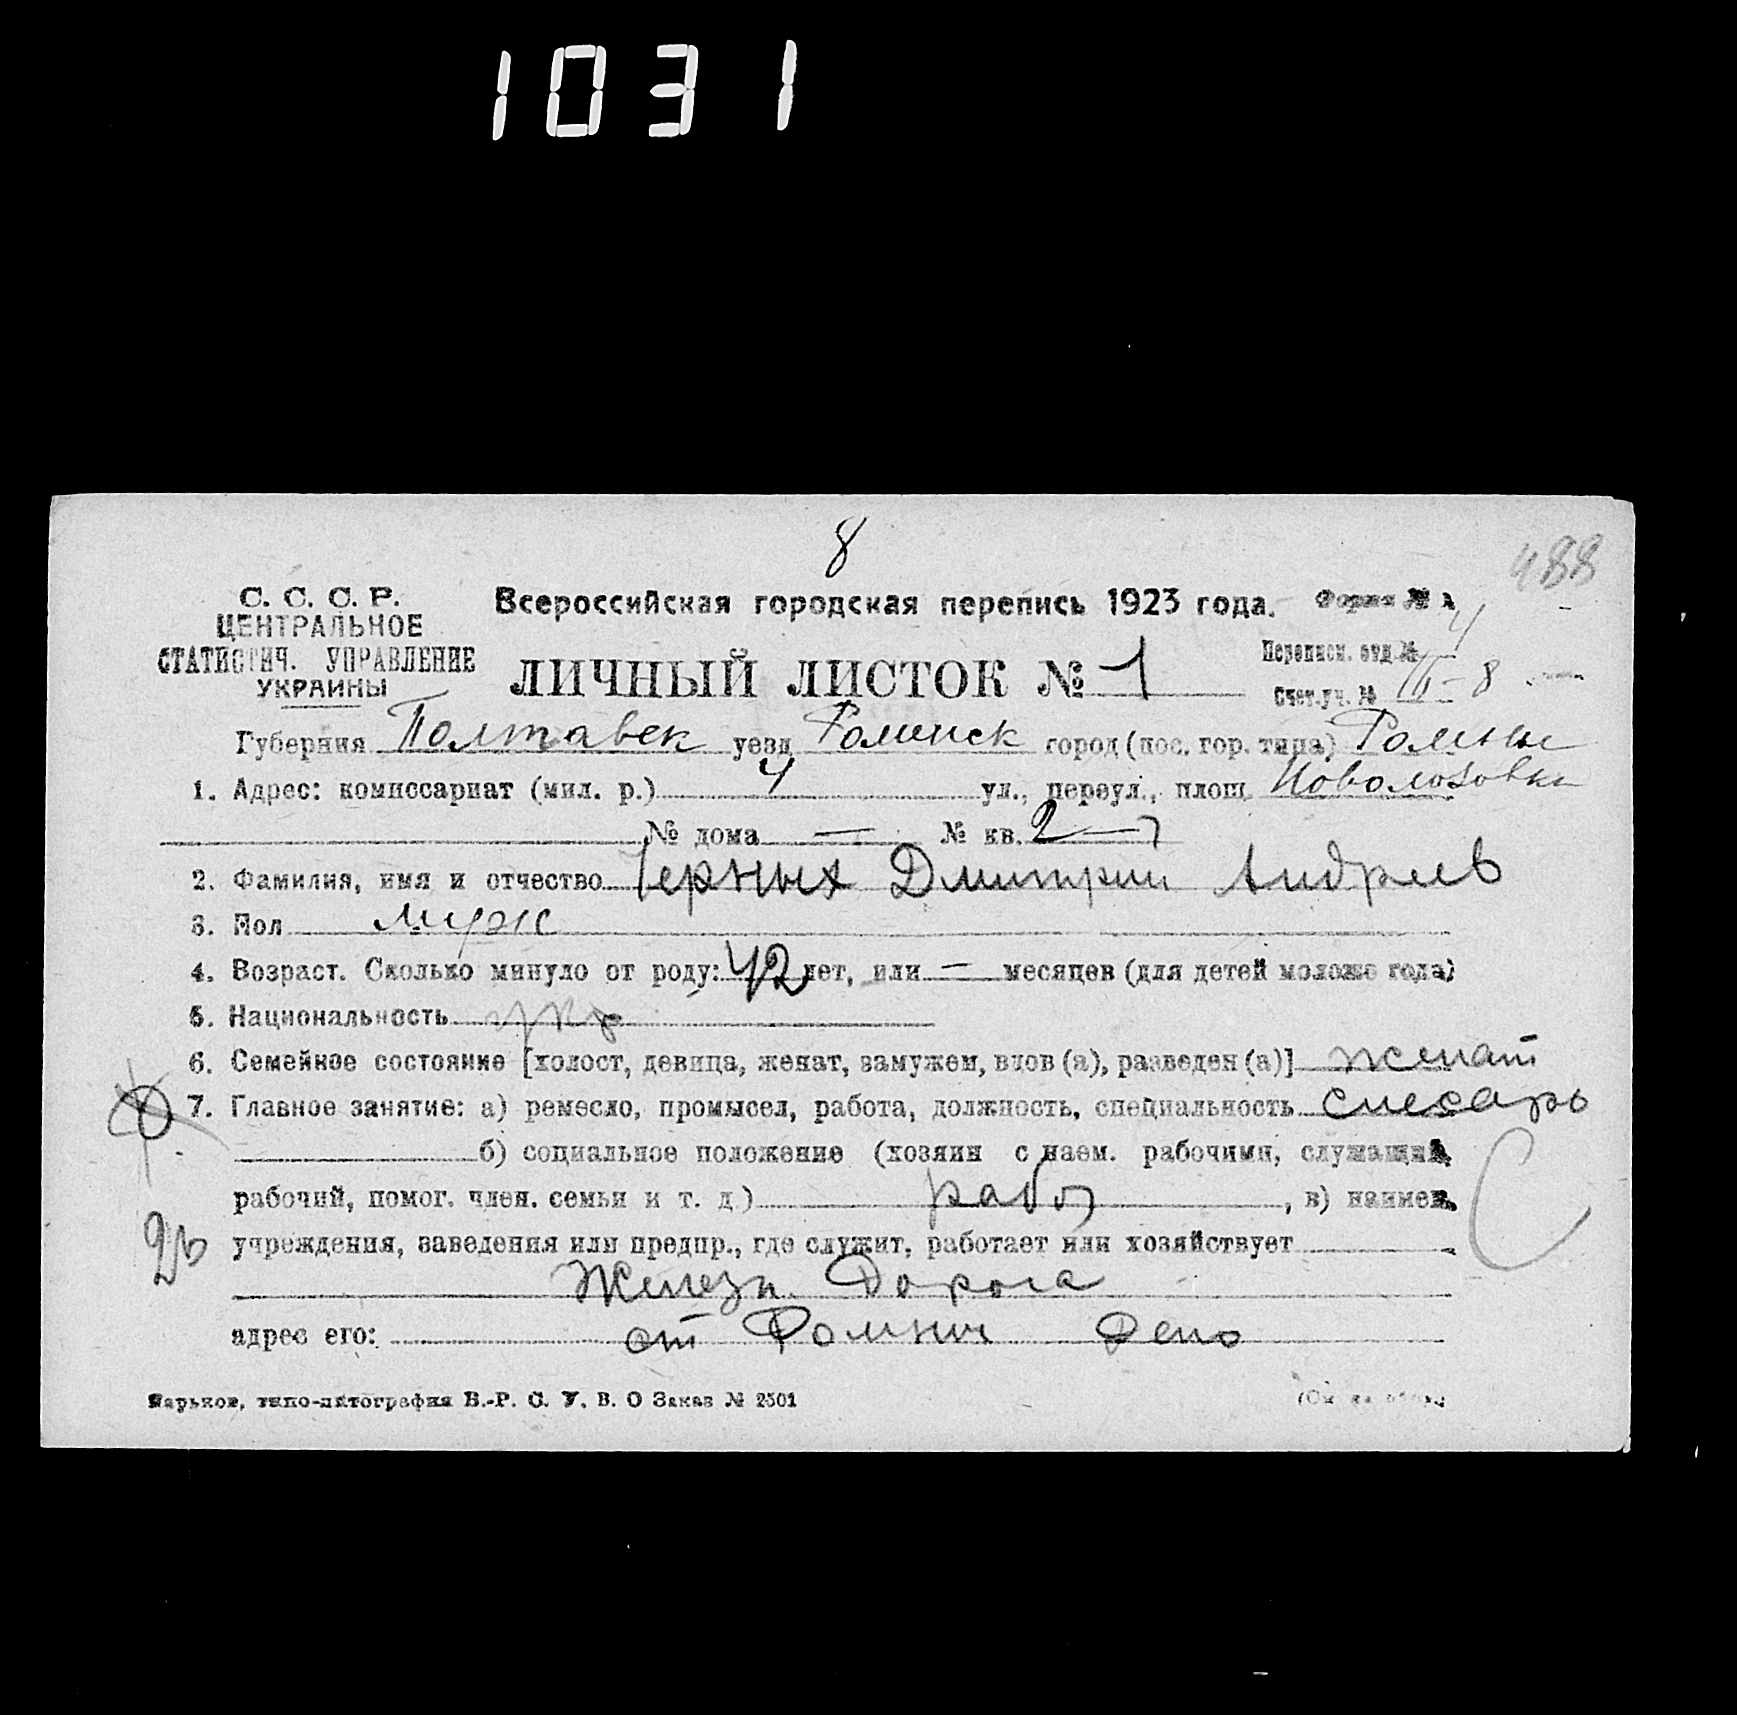 1031
8
488
С. С. С. Р.
ЦЕНТРАЛЬНОЕ
СТАТИСТИЧ. УПРАВЛЕНИЕ
УКРАИНЫ
Всероссийская городская перепись 1923 года.
Форма №
ЛИЧНЫЙ ЛИСТОК № 1
Переписн. отд. № 4
Счет. уч. № III-8
Губерния Полтавск уезд Роменск город (пос. гор. типа) Ромны
1. Адрес: комиссариат (мил. р.) 4 ул., переул., площ.
№ дома — № кв. 2
2. Фамилия, имя и отчество Черных Дмитрий Андреев
3. Пол муж
4. Возраст. Сколько минуло от роду: 42 лет, или — месяцев (для детей моложе года)
5. Национальность укр
6. Семейное состояние [холост, девица, женат, замужем, вдов (а), разведен (а)] женат
7. Главное занятие: а) ремесло, промысел, работа, должность, специальность слесарь
б) социальное положение (хозяин с наем. рабочими, служащий,
рабочий, помог. член. семьи и т. д.) раб , в) наимен.
учреждения, заведения или предпр., где служит, работает или хозяйствует
Железн. Дорога
адрес его: ст Ромны Депо
Харьков, типо-литография В.-Р. С. У. В. О Заказ № 2501
(См на обор.)